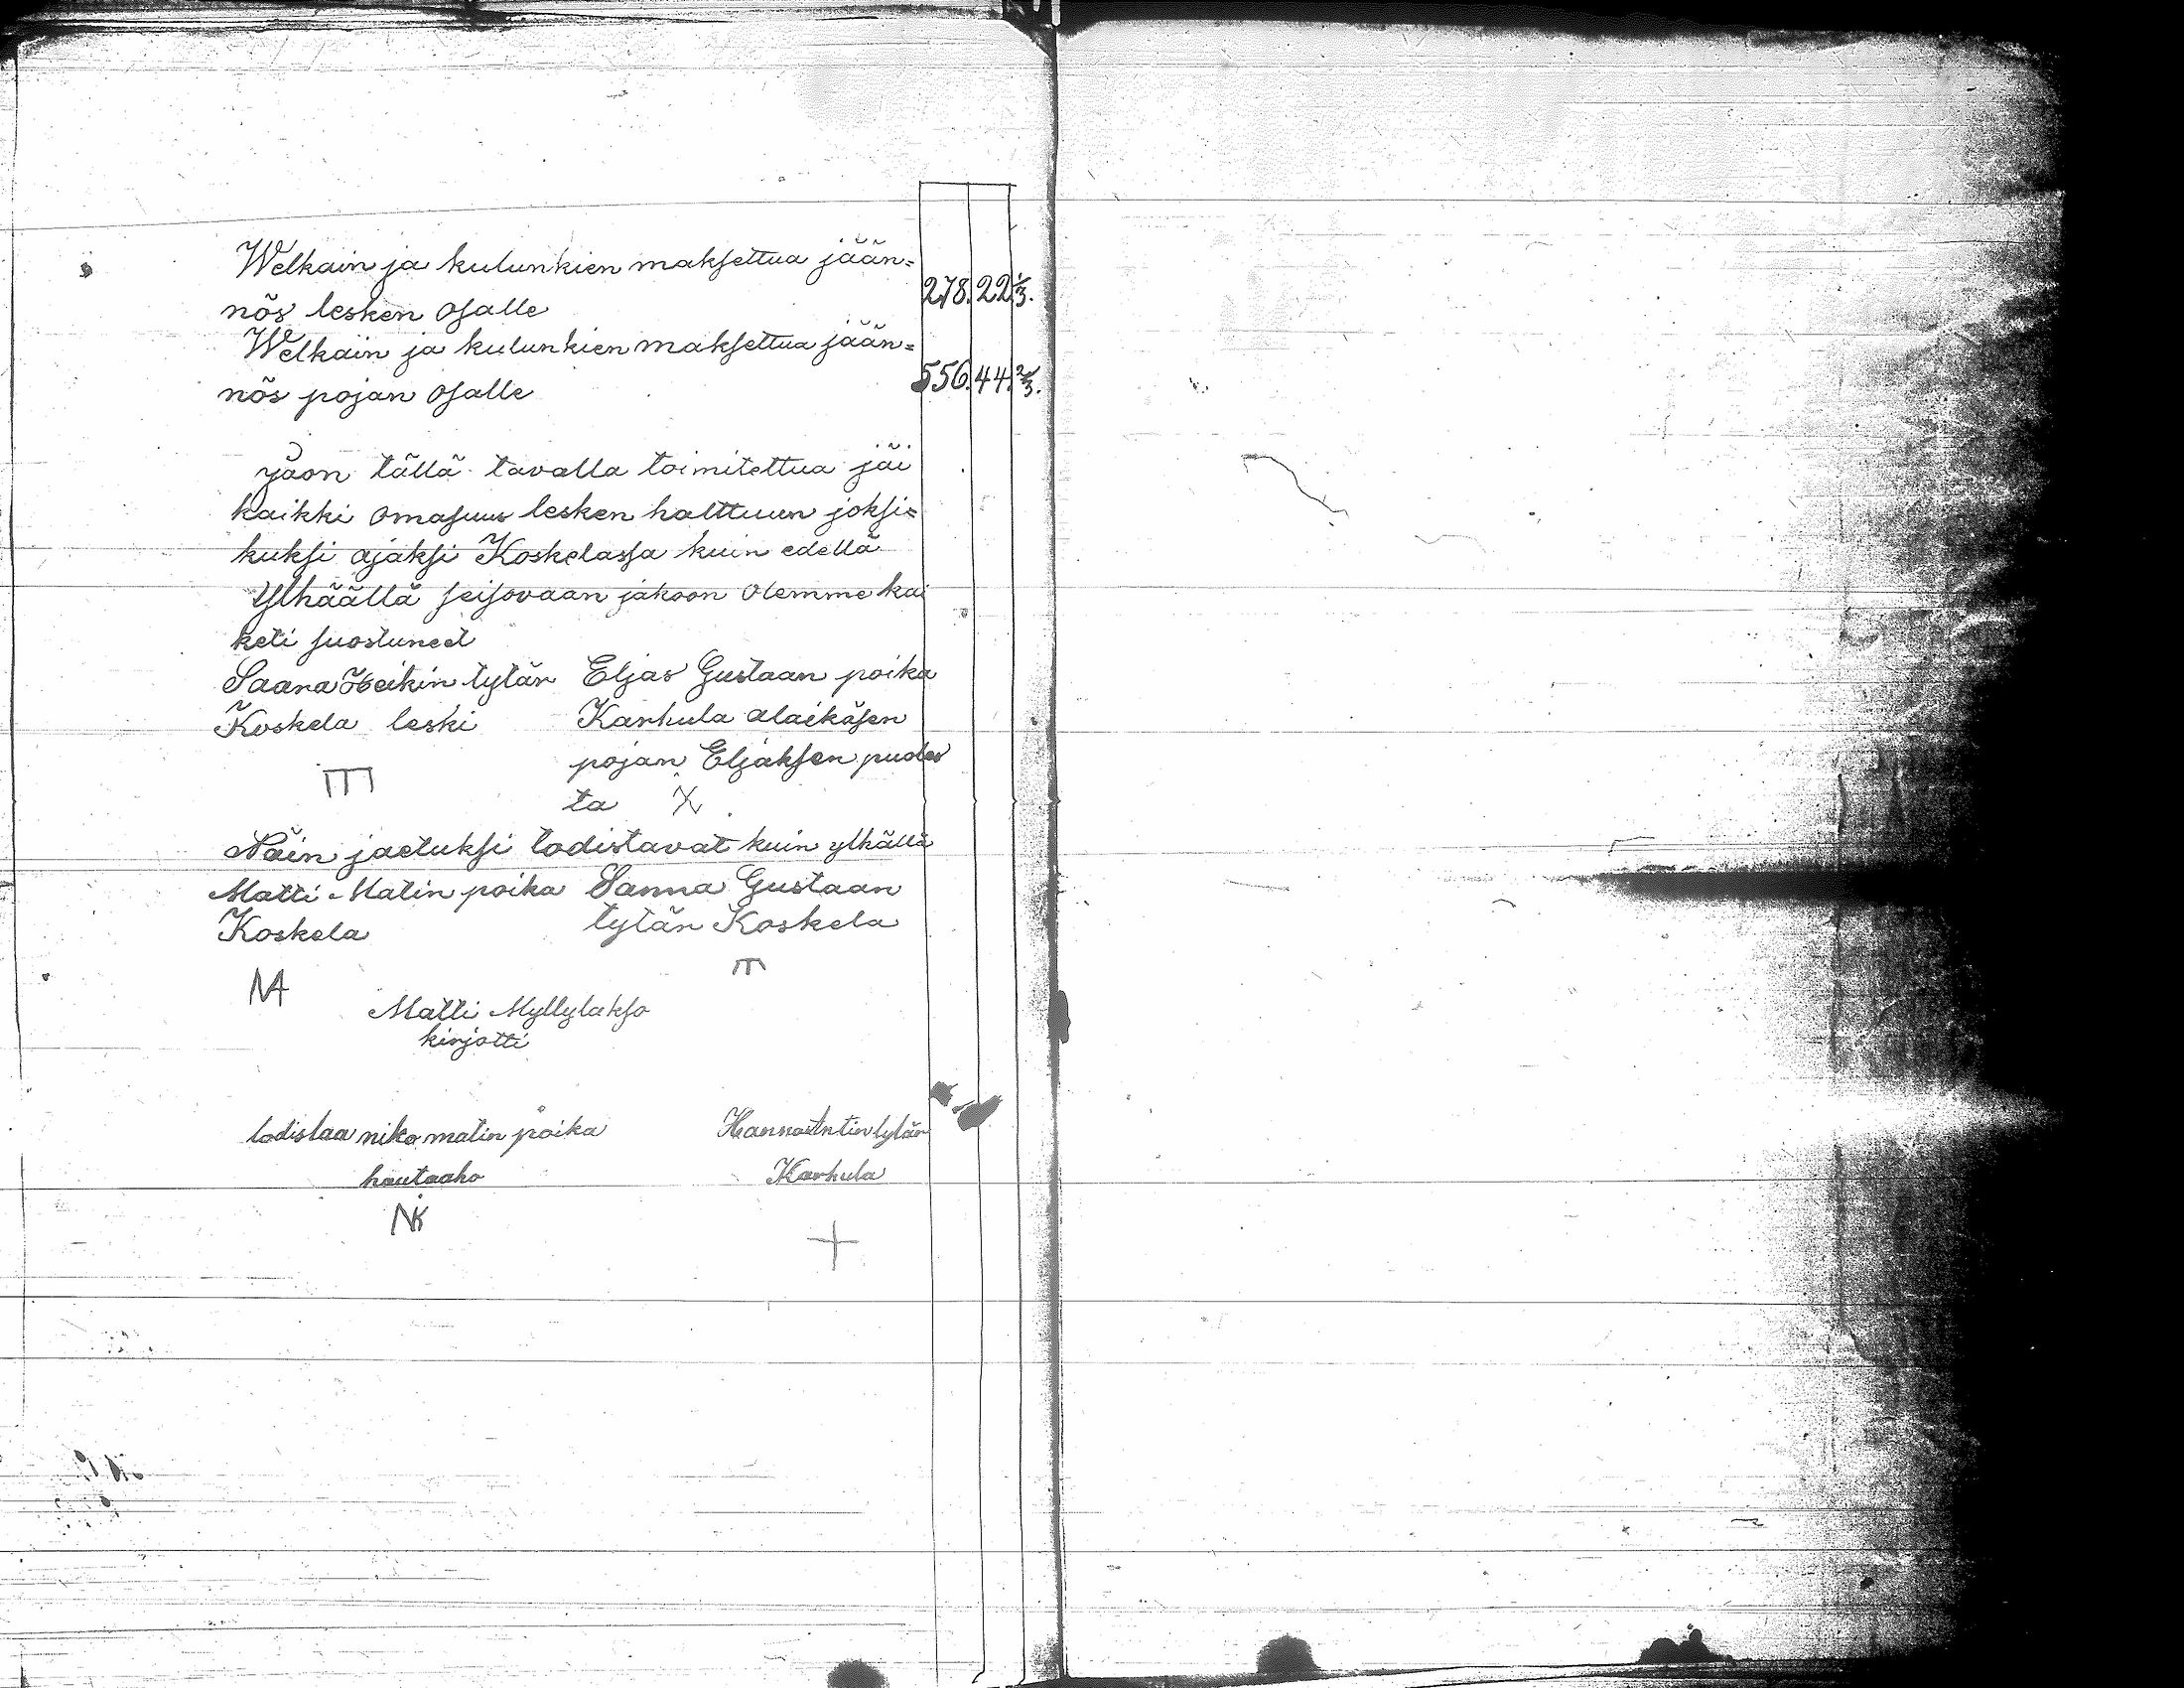 Welkain ja kulunkien maksettua jään=
nös lesken osalle 278. 22 1/3.
Welkain ja kulunkien maksettua jään=
nös pojan osalle 556. 44. 2/3.
Jaon tällä tavalla toimitettua jäi
kaikki omasuus lesken halttuun joksi=
kuksi ajaksi Koskelassa kuin edellä
Ylhäällä seisovaan jakoon olemme kai
keti suostuneet
Saara Heikin tytär Eljas Gustaan poika
Koskela leski Karhula alaikäsen
pojan Eljaksen puoles
ta X
Näin jaetuksi todistavat kuin ylhällä
Matti Matin poika Sanna Gustaan
Koskela tytär Koskela
M
Matti Myllylakso
kirjotti
todistaa niko matin poika Hanna Antin tytär
hautaaho Karhula
NK +